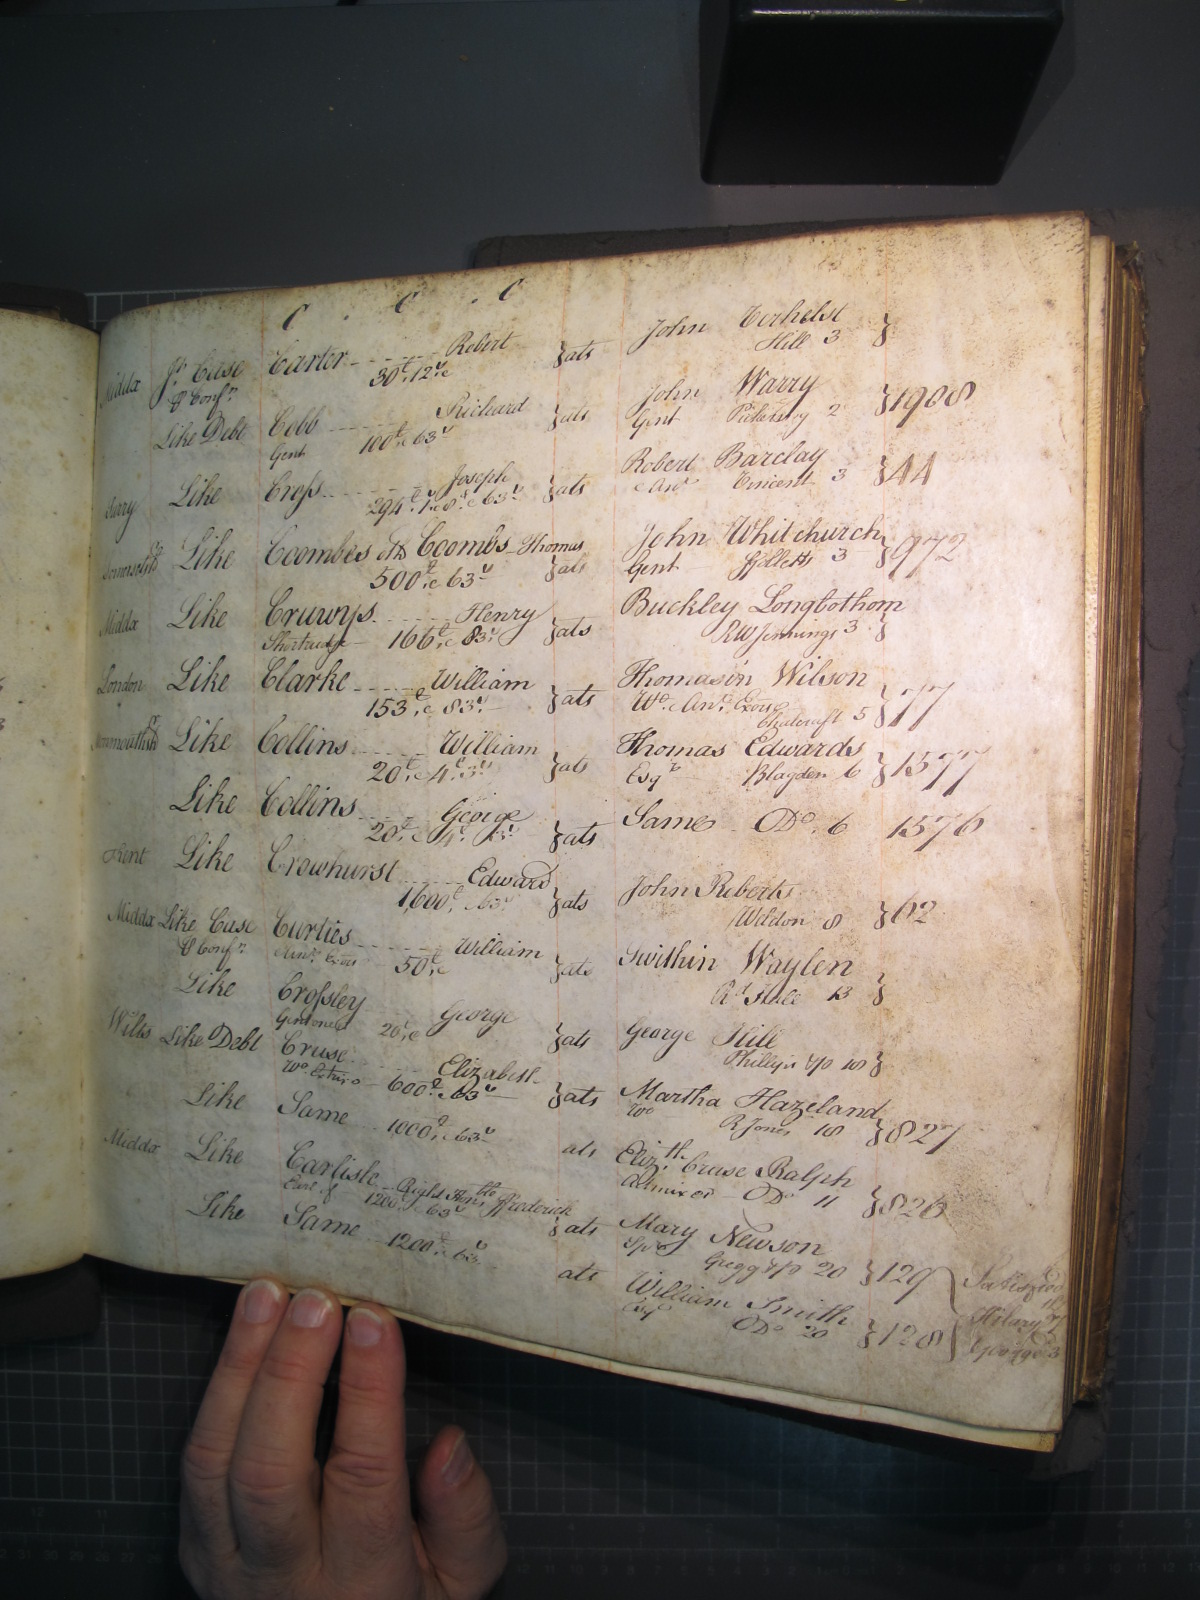 C . C . C
Middx Jt. Case Carter Robert }ats John Verhelst }
& Confn. 30£..12s. Hill 3
Like Debt Cobb Richard }ats John Warry }1908
Gent 100£ & 63s Gent 2
Like Cross Joseph }ats Robert Barclay }44
294£. & 63s & Anr. Vincent 3
Like Coombes oth Coombs Thomas }ats John Whitchurch }972
500£ & 63s Gent Ffolletts 3
Middx Like Cruwys Henry }ats Buckley Longbothom }
166£ & 83s RW Jennings 3
London Like Clarke William }ats Thomasin Wilson }77
153£ & 83s Wo. & Anr. Exors Chalcraft 5
Like Collins William }ats Thomas Edwards }1577
20£ & 4£ Esqr Blagden 6
Like Collins George }ats Same Do. 6 1576
20£ & 4£
Kent Like Crowhurst Edward }ats John Roberts }62
1600£. 63s Weldon 8
Middx Like Case Curties William }ats Swithin Waylen }
& Confn. 50£ Rd 13
Like Crossley George }ats George Hill }
Gent one 20£ Phillips 18
Wilts Like Debt Cruse Elizabeth }ats Martha Hazeland }827
Wo. 600£. & 63s Wo R Jones 18
Like Same 1000£. & 63s ats Elizth. Cruse Ralph }826
Admixor Do 11
Middx Like Carlisle Right Honble Ffrederick }ats Mary Newson }129
Earl of 1200£. & 63s Spr Gregg 20
Like Same 1200£. & 63s ats William Smith }128
Esqr Do 20
Hilary
George 3